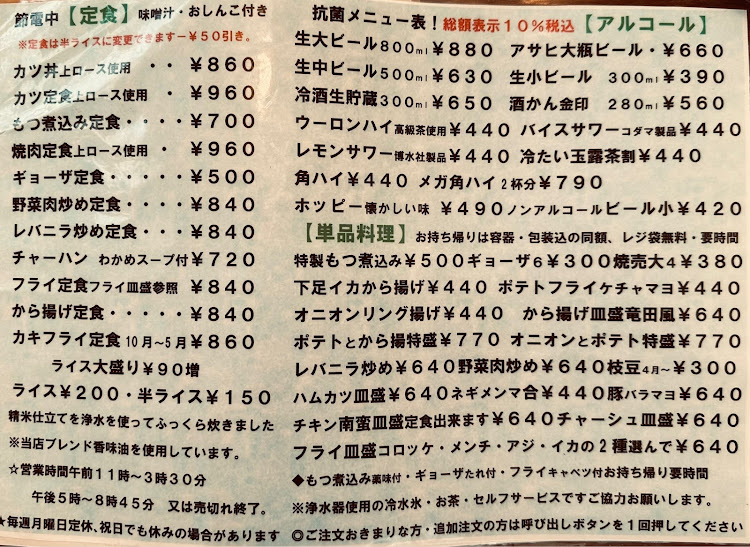 節電中【定食】味噌汁・おしんこ付き
※定食は半ライスに変更できますー¥50引き。
カツ丼上ロース使用 ・・ ¥860
カツ定食上ロース使用 ・ ¥960
もつ煮込み定食・・・・ ¥700
焼肉定食上ロース使用 ・ ¥960
ギョーザ定食・・・・・ ¥500
野菜肉炒め定食・・・・ ¥840
レバニラ炒め定食・・・ ¥840
チャーハン わかめスープ付 ¥720
フライ定食フライ皿盛参照 ¥840
から揚げ定食・・・・・ ¥840
カキフライ定食 10月〜5月 ¥860
ライス大盛り¥90増
ライス¥200・半ライス¥150
精米仕立てを浄水を使ってふっくら炊きました
※当店ブレンド香味油を使用しています。
☆営業時間午前11時〜3時30分
午後5時〜8時45分 又は売切れ終了。
★毎週月曜日定休、祝日でも休みの場合があります
抗菌メニュー表！総額表示10%税込【アルコール】
生大ビール800ml ¥880 アサヒ大瓶ビール・ ¥660
生中ビール500ml ¥630 生小ビール 300ml ¥390
冷酒生貯蔵300ml ¥650 酒かん金印 280ml ¥560
ウーロンハイ高級茶使用¥440 バイスサワーコダマ製品¥440
レモンサワー博水社製品¥440 冷たい玉露茶割¥440
角ハイ¥440 メガ角ハイ2杯分¥790
ホッピー懐かしい味 ¥490ノンアルコールビール小¥420
【単品料理】お持ち帰りは容器・包装込の同額、レジ袋無料・要時間
特製もつ煮込み¥500ギョーザ6¥300焼売大4¥380
下足イカから揚げ¥440 ポテトフライケチャマヨ¥440
オニオンリング揚げ¥440 から揚げ皿盛竜田風¥640
ポテトとから揚特盛¥770 オニオンとポテト特盛¥770
レバニラ炒め¥640野菜肉炒め¥640枝豆4月〜¥300
ハムカツ皿盛¥640ネギメンマ合¥440豚バラマヨ¥640
チキン南蛮皿盛定食出来ます¥640チャーシュ皿盛¥640
フライ皿盛コロッケ・メンチ・アジ・イカの2種選んで¥640
◆もつ煮込み薬味付・ギョーザたれ付・フライキャベツ付お持ち帰り要時間
※浄水器使用の冷水氷・お茶・セルフサービスでご協力お願いします。
◎ご注文おきまりな方・追加注文の方は呼び出しボタンを1回押してください